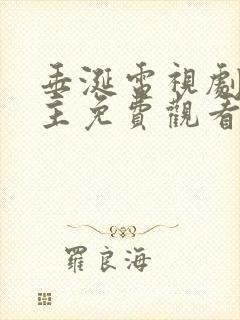 垂涎電視劇
主免費觀看
羅良海